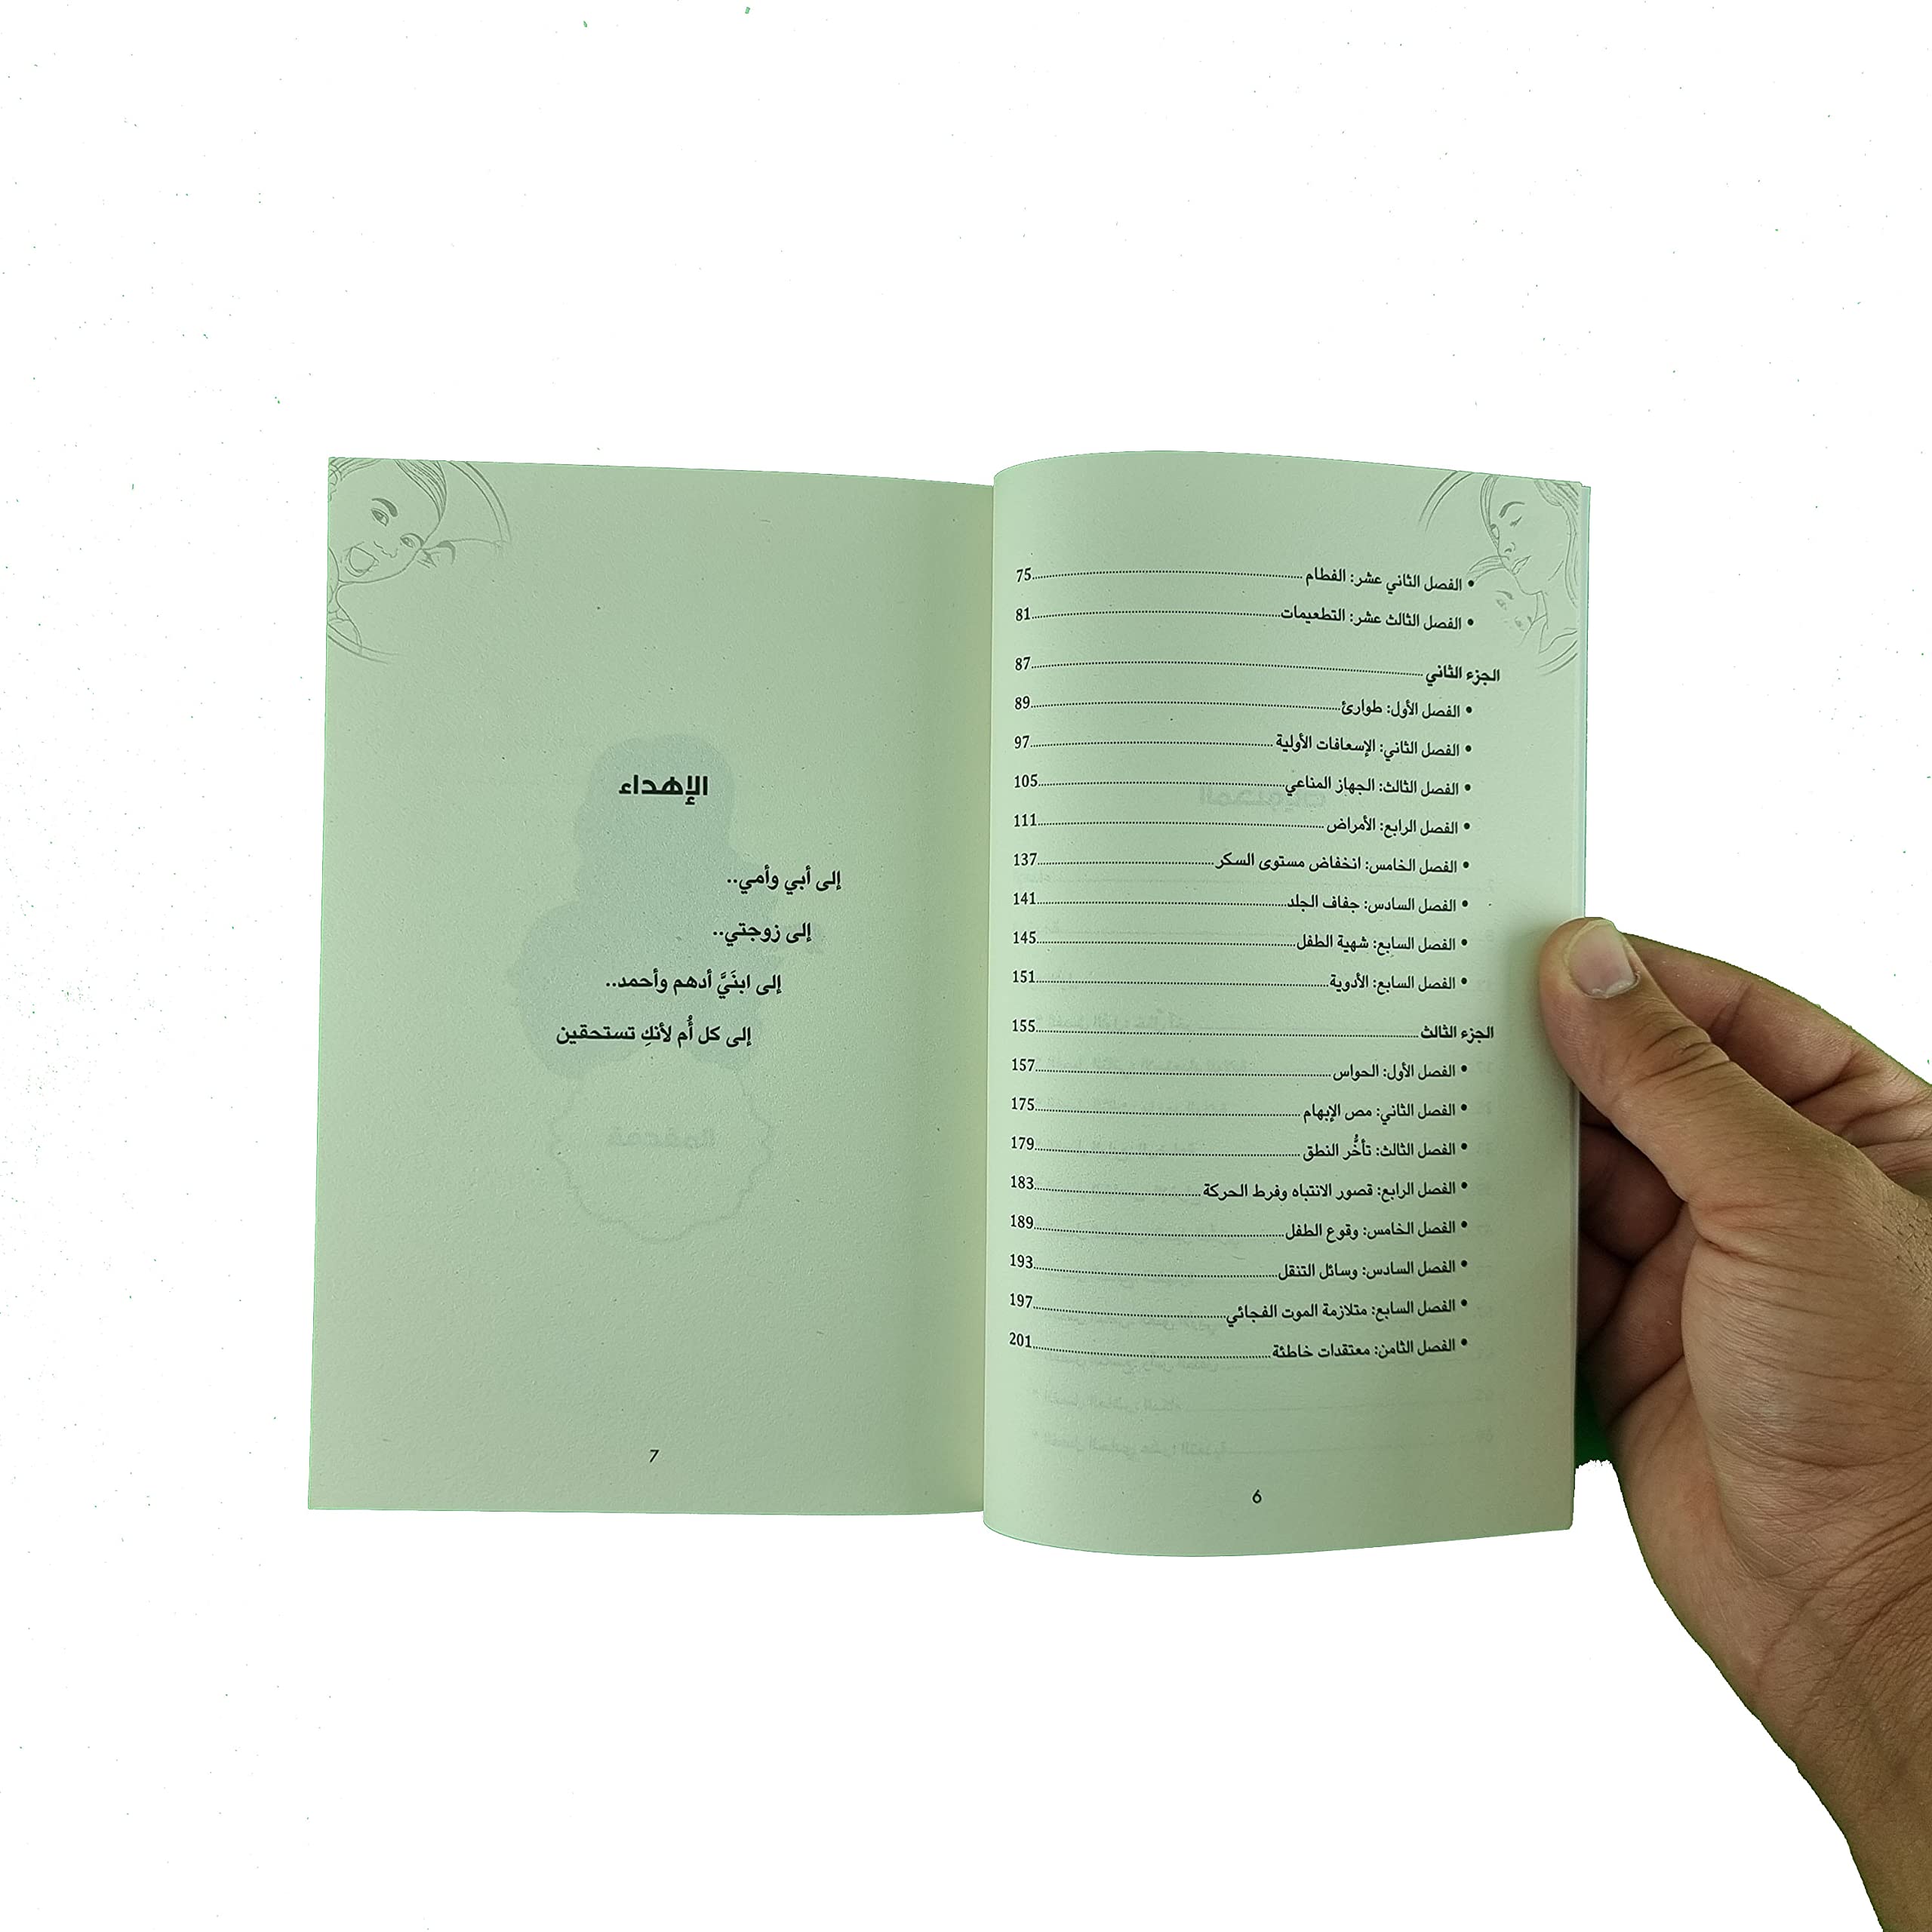 • الفصل الثاني عشر: الفطام................75
• الفصل الثالث عشر: التطعيمات................81
الجزء الثاني................87
• الفصل الأول: طوارئ................89
• الفصل الثاني: الإسعافات الأولية................97
• الفصل الثالث: الجهاز المناعي................105
• الفصل الرابع: الأمراض................111
• الفصل الخامس: انخفاض مستوى السكر................137
• الفصل السادس: جفاف الجلد................141
• الفصل السابع: شهية الطفل................145
• الفصل السابع: الأدوية................151
الجزء الثالث................155
• الفصل الأول: الحواس................157
• الفصل الثاني: مص الإبهام................175
• الفصل الثالث: تأخُّر النطق................179
• الفصل الرابع: قصور الانتباه وفرط الحركة................183
• الفصل الخامس: وقوع الطفل................189
• الفصل السادس: وسائل التنقل................193
• الفصل السابع: متلازمة الموت الفجائي................197
• الفصل الثامن: معتقدات خاطئة................201
6
الإهداء
إلى أبي وأمي..
إلى زوجتي..
إلى ابنَيَّ أدهم وأحمد..
إلى كل أُم لأنكِ تستحقين
7